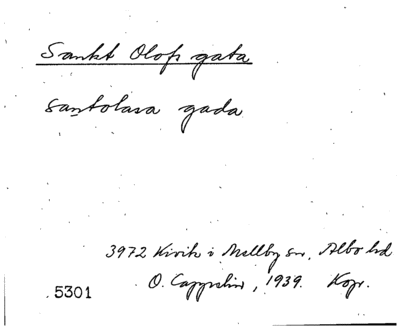 Sankt Olofs gata
santolasa gada
3972 Kivik i Mellby sn, Albo hd
5301 O. Cappelin, 1939. Kopr.